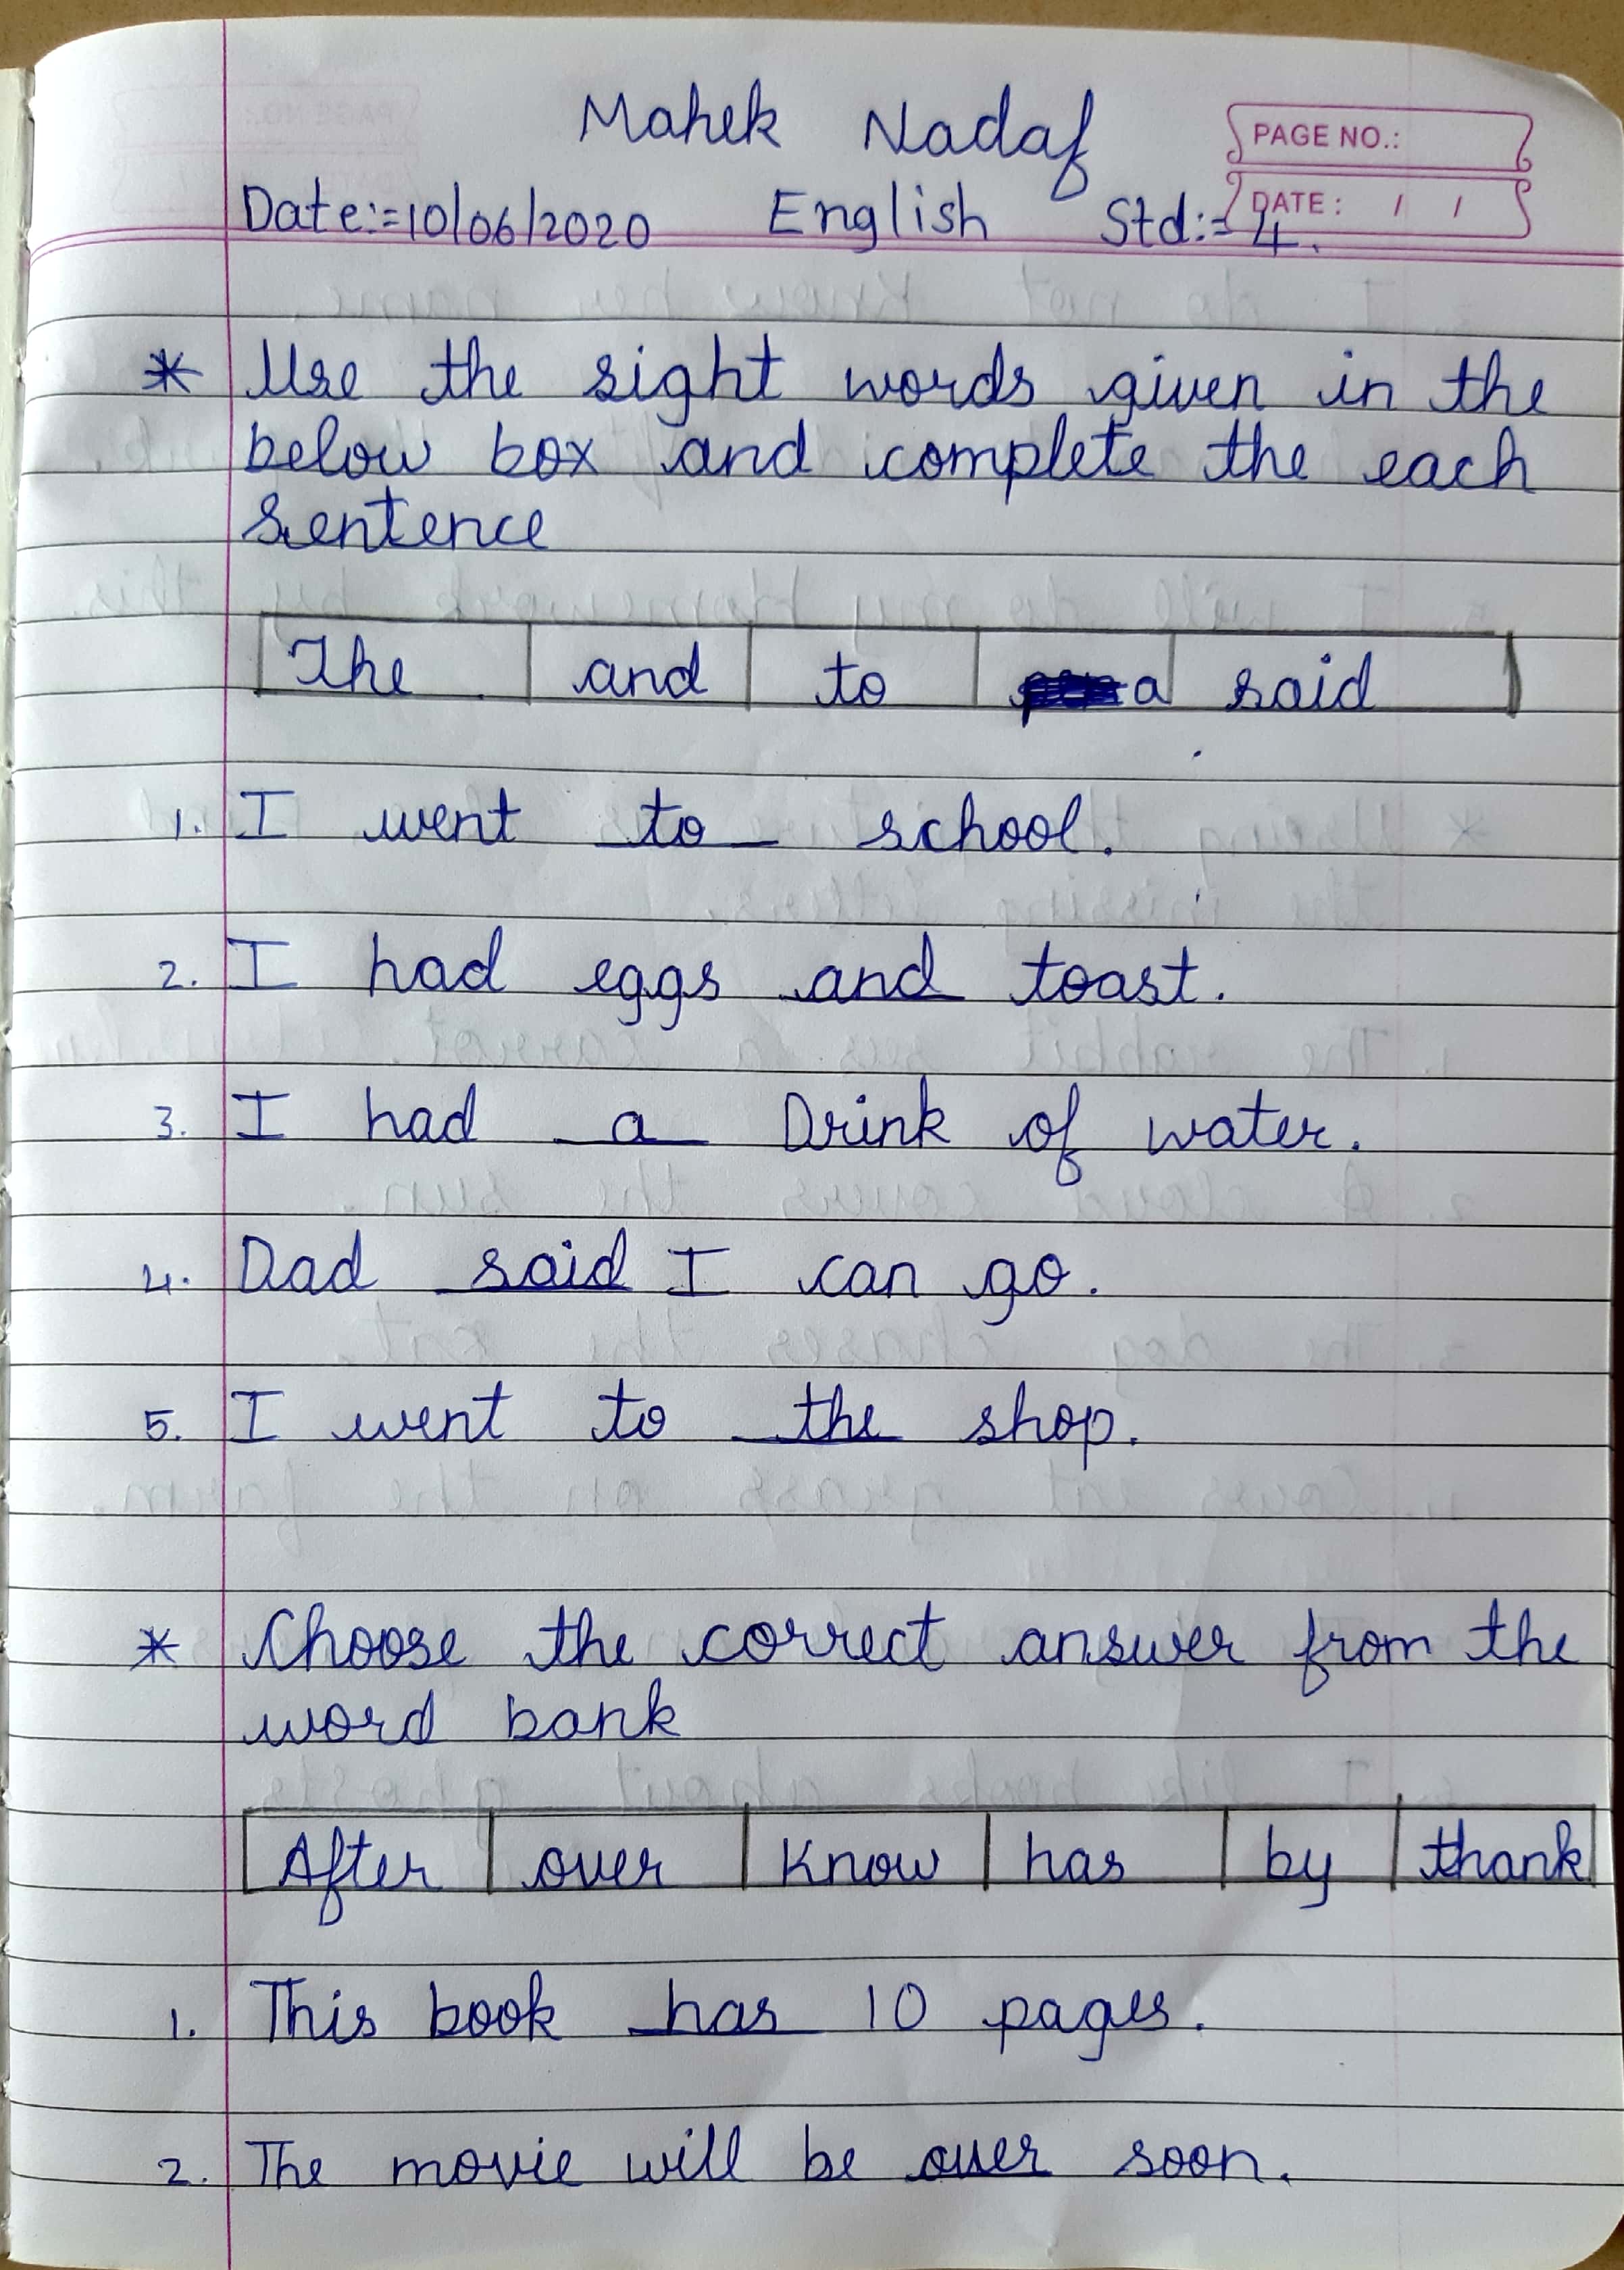 Mahek Nadaf
PAGE NO.:
DATE: / /
Date:=10/06/2020 English Std:=4.
* Use the sight words given in the
below box and complete the each
sentence
The and to a said
1. I went to school.
2. I had eggs and toast.
3. I had a Drink of water.
4. Dad said I can go.
5. I went to the shop.
* Choose the correct answer from the
word bank
After over Know has by thank
1. This book has 10 pages.
2. The movie will be over soon.